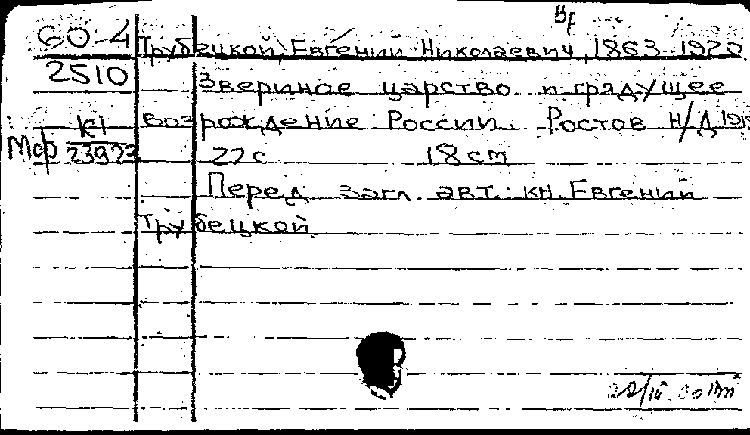 Вр
60-4 Трубецкой, Евгений Николаевич, 1863-1920
2510 Звериное царство и грядущее
возрождение России. Ростов н/Д
Мф К1
23973 22 с 18 cm
Перед загл. авт.: кн. Евгений
Трубецкой